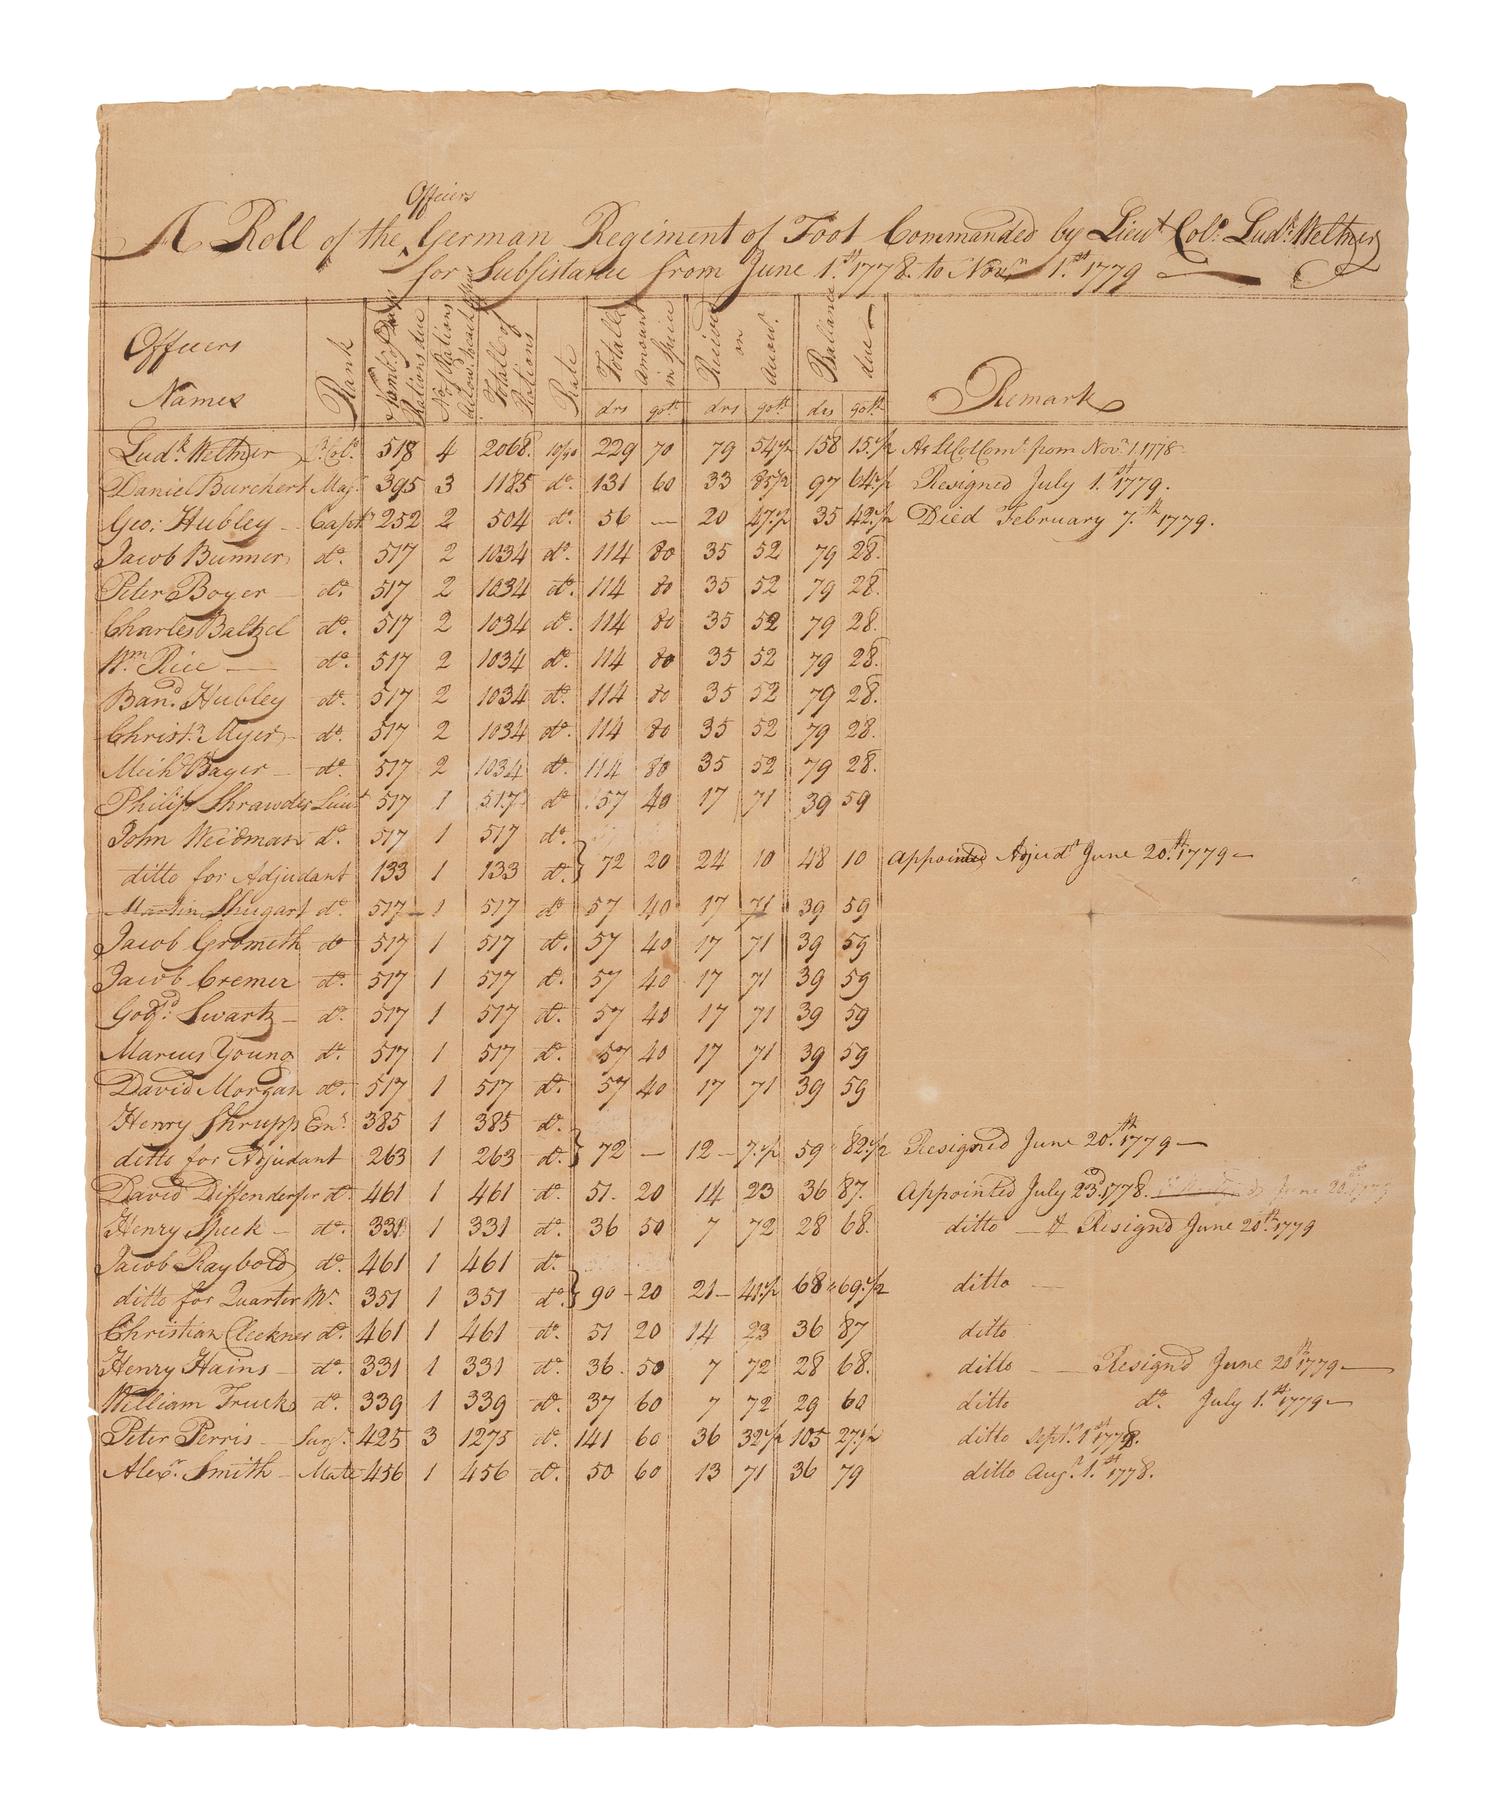 Officers
A Roll of the German Regiment of Foot Commanded by Lieut Colo. Ludk. Weltner
for Subsistance from June 1.st 1778. to Novr. 1.st 1779
Officers Names Rank Numb. of Days Rations due No. of Rations allow'd each Totall of Rations Rate Totall amount in Specie Receivd on Accot. Ballance due Remark
drs 90th drs 90th drs 90th
Ludk. Weltner Lt. Colo. 518 4 2068. 10/90 229 70 79 54½ 158 15½ As Lt Col Comt. from Novr. 1. 1778
Daniel Burchert Majr. 395 3 1185 do. 131 60 33 85½ 97 64½ Resigned July 1.st 1779.
Geo: Hubley Capt. 252 2 504 do. 56 — 20 47½ 35 42½ Died February 7.th 1779.
Jacob Bunner do. 517 2 1034 do. 114 80 35 52 79 28.
Peter Boyer do. 517 2 1034 do. 114 80 35 52 79 28.
Charles Baltzel do. 517 2 1034 do. 114 80 35 52 79 28.
Wm. Rice — do. 517 2 1034 do. 114 80 35 52 79 28.
Band. Hubley do. 517 2 1034 do. 114 80 35 52 79 28.
Christr. Myer do. 517 2 1034 do. 114 80 35 52 79 28.
Michl. Bayer do. 517 2 1034 do. 114 80 35 52 79 28.
Philip Shrawder Lieut 517 1 517 do 57 40 17 71 39 59
John Weidman do. 517 1 517 do.
ditto for Adjudant 133 1 133 do. 72 20 24 10 48 10 Appointed Adjudt June 20.th 1779
Martin Shugart do. 517 1 517 do 57 40 17 71 39 59
Jacob Gromith do 517 1 517 do. 57 40 17 71 39 59
Jacob Cremer do. 517 1 517 do. 57 40 17 71 39 59
Godfd. Swartz do. 517 1 517 do. 57 40 17 71 39 59
Marcus Young do. 517 1 517 do. 57 40 17 71 39 59
David Morgan do. 517 1 517 do. 57 40 17 71 39 59
Henry Shrupp Ens. 385 1 385 do.
ditto for Adjudant 263 1 263 do. 72 — 12 7½ 59 82½ Resigned June 20.th 1779
David Diffenderfer do. 461 1 461 do. 51. 20 14 23 36 87. Appointed July 23d. 1778. June 20.th 1779
Henry Speck do. 331 1 331 do. 36 50 7 72 28 68. ditto — & Resignd June 20th 1779
Jacob Raybold do. 461 1 461 do.
ditto for Quarter Mr. 351 1 351 do. 90 20 21 41½ 68 69½ ditto
Christian Cleckner do. 461 1 461 do. 51 20 14 23 36 87 ditto
Henry Hains do. 331 1 331 do. 36. 50 7 72 28 68. ditto — Resignd June 20th 1779
William Trucks do. 339 1 339 do. 37 60 7 72 29 60 ditto do. July 1.st 1779
Peter Perris Surgn. 425 3 1275 do. 141 60 36 32½ 105 27½ ditto Sept. 1.st 1778.
Alexr. Smith Mate 456 1 456 do. 50 60 13 71 36 79 ditto Augt. 1.st 1778.